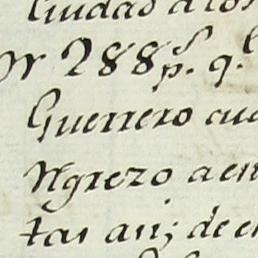 Ciudad a los
pr 288 p.s q.e
Guerrero
Ngrezo a en
tas asi; de e